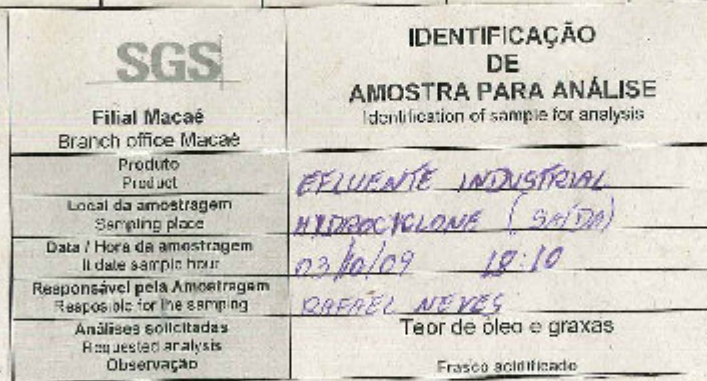 SGS
IDENTIFICAÇÃO
DE
AMOSTRA PARA ANÁLISE
Identification of sample for analysis
Filial Macaé
Branch office Macaé
Produto
Product
EFLUENTE INDUSTRIAL
Local da amostragem
Sampling place
HYDROCYCLONE (SAÍDA)
Data / Hora da amostragem
date sample hour
03/10/09 18:10
Responsável pela Amostragem
Resposible for the samping
RAFAEL NEVES
Análises solicitadas
Requested analysis
Teor de óleo e graxas
Observação
Frasco acidificado